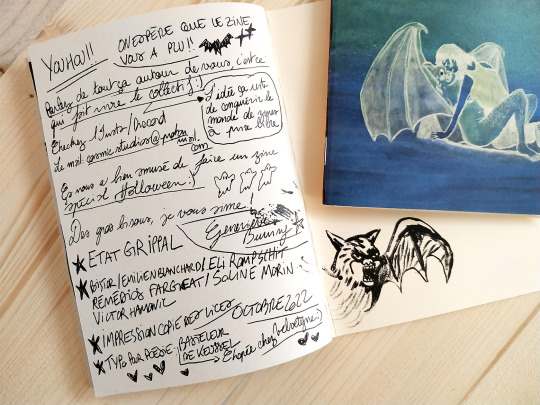 YOUHOU!!
ON ESPÈRE QUE LE ZINE
VOUS A PLU!!
Parlez de tout ça autour de vous, c'est ce
qui fait vivre le collectif :)
L'idée ça reste
de conquérir le
monde de
à prix libre
Checkez l'insta/
Le mail: cosmic.studios@proton
mail.
com
Ça nous a bien amusé de faire un zine
spécial Halloween :)
Des gros bisous, je vous aime!
Geneviève
Bunny
ETAT GRIPPAL
BISTOR/EMILIEN BLANCHARD/ELI ROMPSCHIT
REMEDIOS FARGHEAT/SOLINE MORIN
VICTOR HAMONIC
IMPRESSION COPIE DES LICES
OCTOBRE 2022
TYPO PAR POESIE:
BATTELEUR
DE KEUSSEL
Chopée chez Velvetyne :)